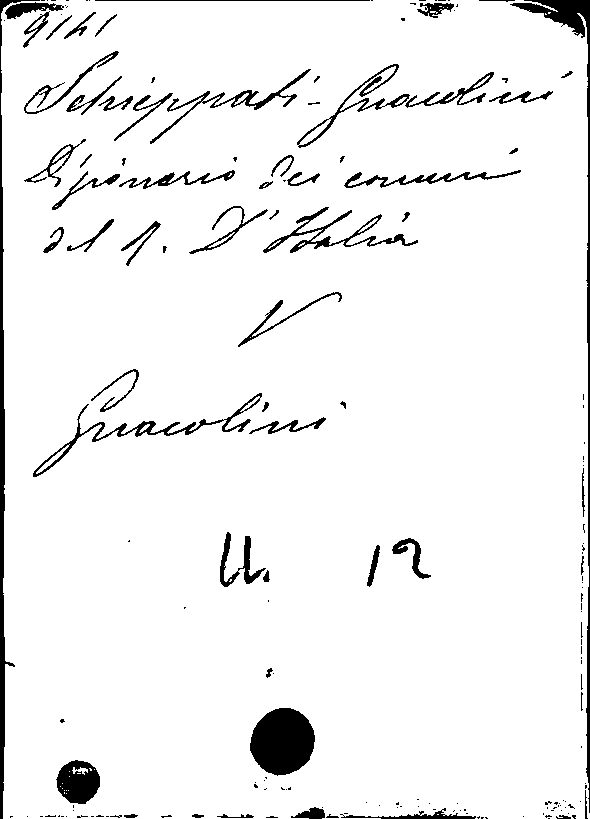 9141
Schieppati - Guacolini
Dizionario dei comuni
del R. D'Italia
V
Guacolini
U. 12